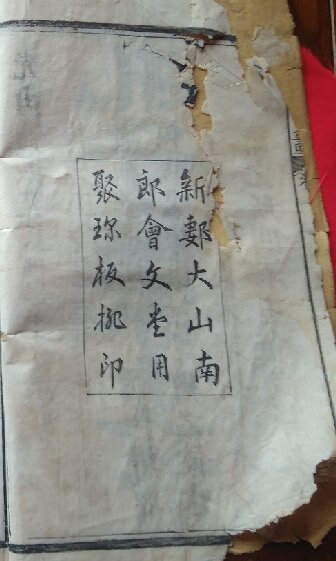 新鄭大山南
郎會文堂用
聚珎板排印